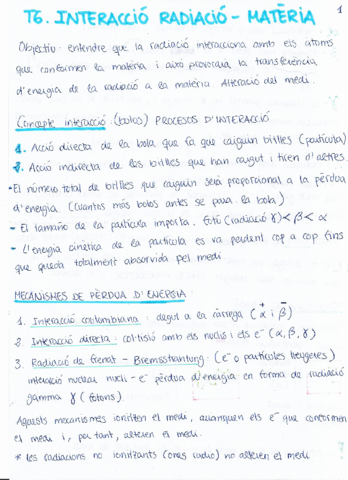 T6. INTERACCIÓ RADIACIÓ - MATÈRIA
1
Objectiu: entendre que la radiació interacciona amb els àtoms
que conformen la matèria i això provocarà la transferència
d'energia de la radiació a la matèria. Alteració del medi.
Concepte interacció: (bolos) PROCESOS D'INTERACCIÓ
1. Acció directa de la bola que fa que caiguin bitlles (partícula)
2. Acció indirecta de les bitlles que han caigut i tiren d'altres.
- El número total de bitlles que caiguin serà proporcional a la pèrdua
d'energia. (Cuantos más bolos antes se para la bola)
- El tamaño de la partícula importa. Fotó (radiació γ) < β < α
- L'energia cinètica de la partícula es va perdent cop a cop fins
que queda totalment absorvida pel medi.
MECANISMES DE PÈRDUA D'ENERGIA
1. Interacció coulombiana: degut a la càrrega (α⁺ i β⁻)
2. Interacció directa: col·lisió amb els nuclis i els e⁻ (α, β, γ)
3. Radiació de frenat - Bremsstrahlung: (e⁻ o partícules lleugeres)
interacció nuclear nucli - e⁻ pèrdua d'energia en forma de radiació
gamma γ (fotons).
Aquests mecanismes ionitzen el medi, arranquen els e⁻ que conformen
el medi i, per tant, alteren el medi.
* les radiacions no ionitzants (ones radio) no alteren el medi.